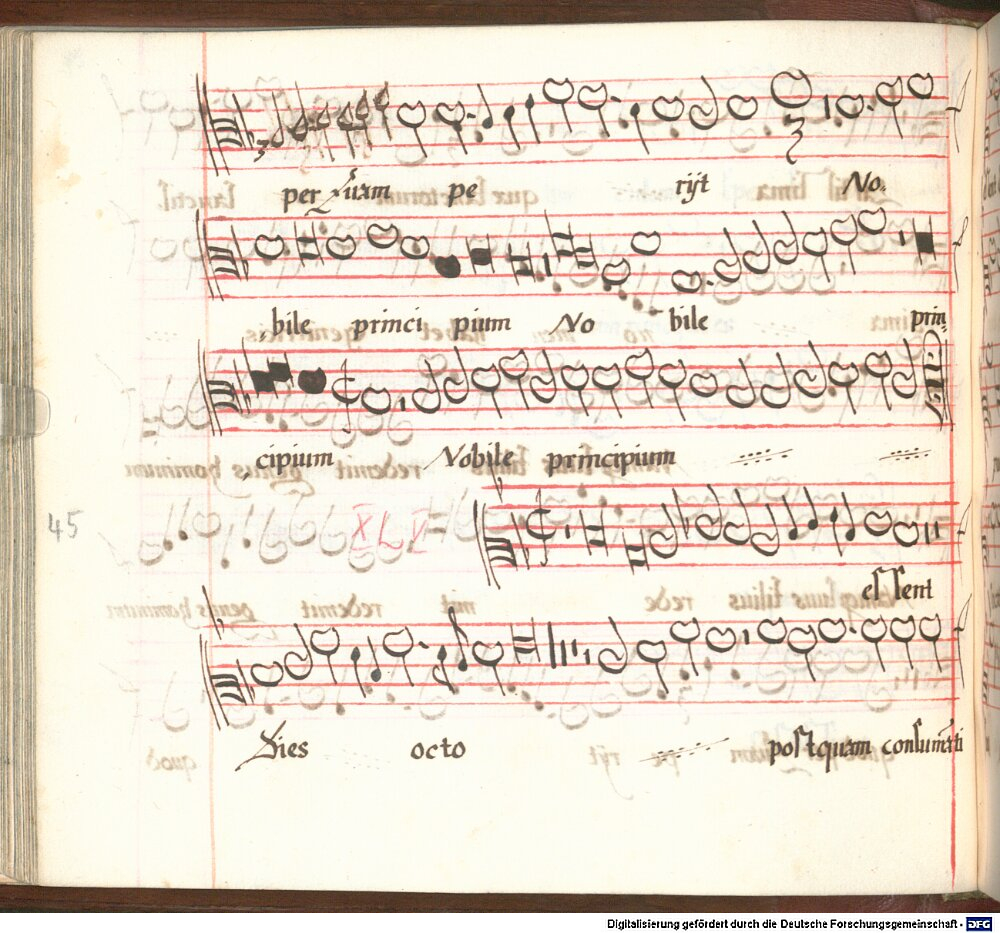 per quam pe rijt No.
bile princi pium No bile prin
cipium Nobile principium
45
essent
Dies octo postquam consumati
Digitalisierung gefördert durch die Deutsche Forschungsgemeinschaft - DFG